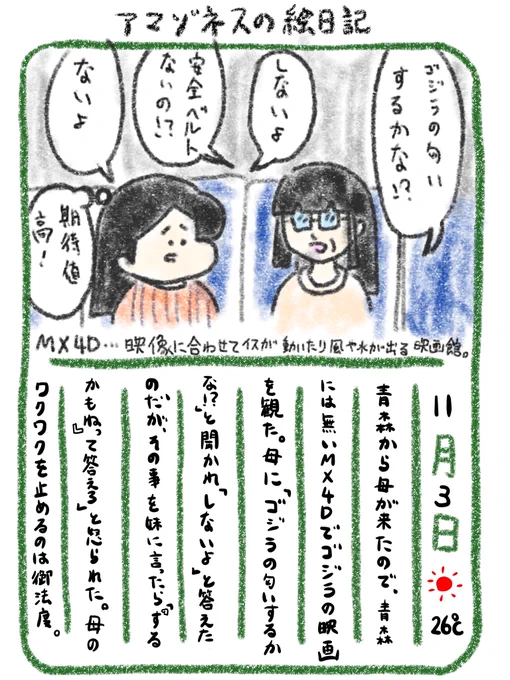 アマゾネスの絵日記
ゴジラの匂い
するかな!?
しないよ
安全ベルト
ないの!?
ないよ
期待値
高!
MX4D…映像に合わせてイスが動いたり風や水が出る映画館。
11月3日 26℃
青森から母が来たので、青森
には無いMX4Dでゴジラの映画
を観た。母に「ゴジラの匂いするか
な!?」と聞かれ「しないよ」と答えた
のだが、その事を妹に言ったら「『する
かもね』って答えろ」と怒られた。母の
ワクワクを止めるのは御法度。